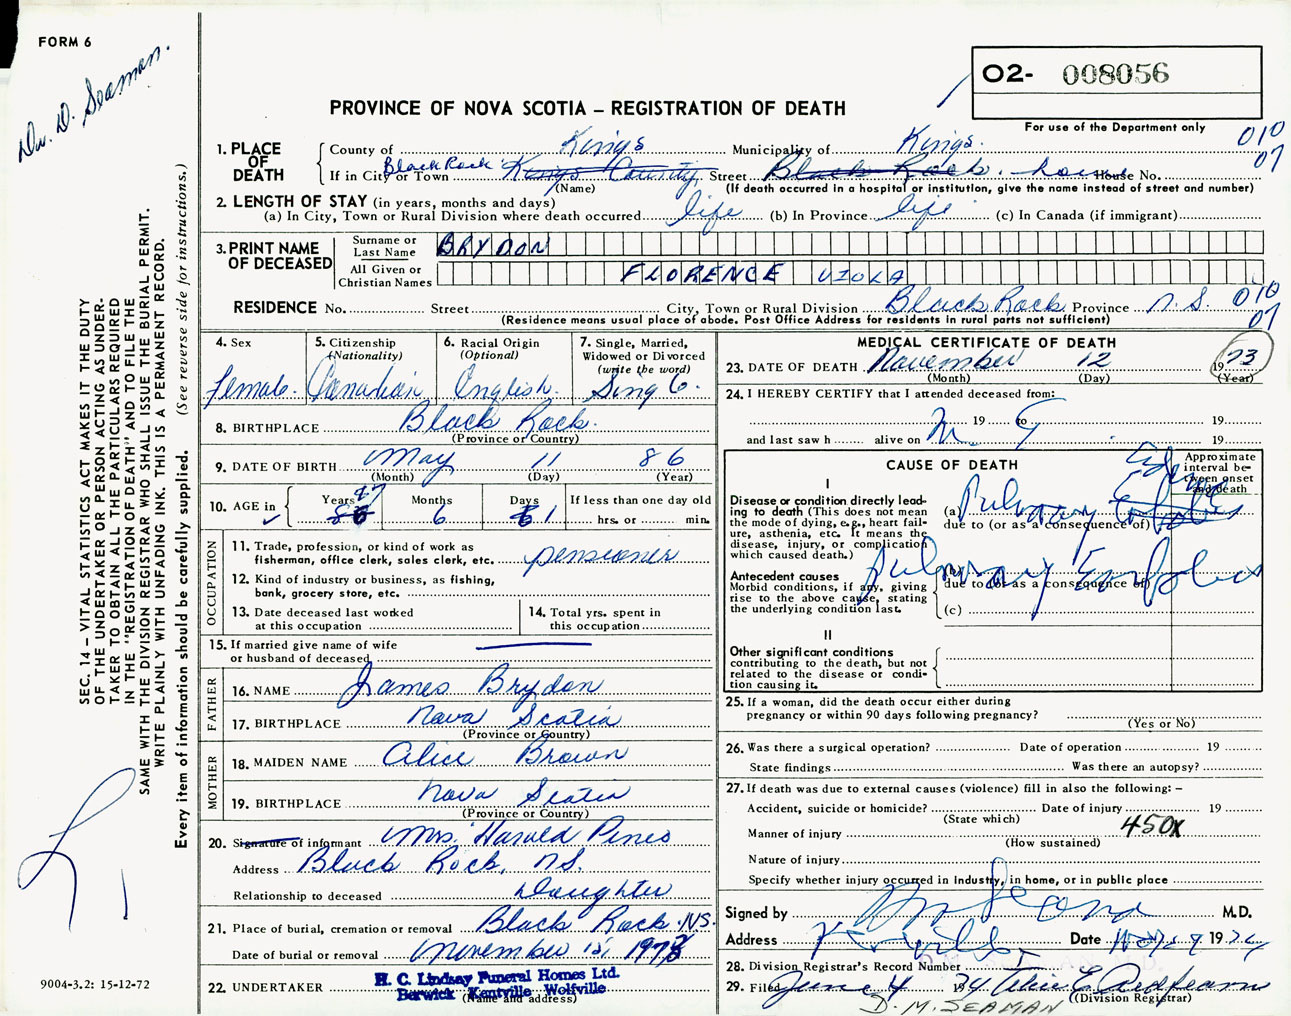 FORM 6
Dr. D. Seaman.
O2- 008056
PROVINCE OF NOVA SCOTIA – REGISTRATION OF DEATH
For use of the Department only
010
07
1. PLACE OF DEATH
County of Kings Municipality of Kings.
If in City or Town Black Rock Kings County, Street Black Rock. house House No.
(Name) (If death occurred in a hospital or institution, give the name instead of street and number)
2. LENGTH OF STAY (in years, months and days)
(a) In City, Town or Rural Division where death occurred life (b) In Province life (c) In Canada (if immigrant)
3. PRINT NAME OF DECEASED
Surname or Last Name BRYDON
All Given or Christian Names FLORENCE VIOLA
RESIDENCE No. Street City, Town or Rural Division Black Rock Province N.S. 010
07
(Residence means usual place of abode. Post Office Address for residents in rural parts not sufficient)
4. Sex
Female.
5. Citizenship
(Nationality)
Canadian
6. Racial Origin
(Optional)
English.
7. Single, Married,
Widowed or Divorced
(write the word)
Single.
8. BIRTHPLACE Black Rock.
(Province or Country)
9. DATE OF BIRTH May 11 86
(Month) (Day) (Year)
10. AGE in
Years 87
Months 6
Days 1
If less than one day old
hrs. or min.
OCCUPATION
11. Trade, profession, or kind of work as
fisherman, office clerk, sales clerk, etc. pensioner
12. Kind of industry or business, as fishing,
bank, grocery store, etc.
13. Date deceased last worked
at this occupation
14. Total yrs. spent in
this occupation
15. If married give name of wife
or husband of deceased
FATHER
16. NAME James Brydon
17. BIRTHPLACE Nova Scotia
(Province or Country)
MOTHER
18. MAIDEN NAME Alice Brown
19. BIRTHPLACE Nova Scotia
(Province or Country)
20. Signature of informant Mrs. Harold Pineo
Address Black Rock, N.S.
Relationship to deceased Daughter
21. Place of burial, cremation or removal Black Rock N.S.
Date of burial or removal November 15, 1973
22. UNDERTAKER H. C. Lindsay Funeral Homes Ltd.
Berwick Kentville Wolfville
(Name and address)
MEDICAL CERTIFICATE OF DEATH
23. DATE OF DEATH November 12 1973
(Month) (Day) (Year)
24. I HEREBY CERTIFY that I attended deceased from:
19 to 19
and last saw h alive on 19
CAUSE OF DEATH
Approximate interval between onset and death
I
Disease or condition directly leading to death (This does not mean the mode of dying, e.g., heart failure, asthenia, etc. It means the disease, injury, or complication which caused death.)
(a) Pulmonary Edema
due to (or as a consequence of)
Antecedent causes
Morbid conditions, if any, giving rise to the above cause, stating the underlying condition last.
(b) Pulmonary Embolus
due to (or as a consequence of)
(c)
II
Other significant conditions
contributing to the death, but not related to the disease or condition causing it.
25. If a woman, did the death occur either during
pregnancy or within 90 days following pregnancy?
(Yes or No)
26. Was there a surgical operation? Date of operation 19
State findings Was there an autopsy?
27. If death was due to external causes (violence) fill in also the following: –
Accident, suicide or homicide? Date of injury 19
(State which)
Manner of injury 450X
(How sustained)
Nature of injury
Specify whether injury occurred in Industry, in home, or in public place
Signed by M.D.
Address Date
28. Division Registrar's Record Number
29. Filed June 4 1974
(Division Registrar)
D. M. SEAMAN
SEC. 14 – VITAL STATISTICS ACT MAKES IT THE DUTY
OF THE UNDERTAKER OR PERSON ACTING AS UNDER-
TAKER TO OBTAIN ALL THE PARTICULARS REQUIRED
IN THE "REGISTRATION OF DEATH" AND TO FILE THE
SAME WITH THE DIVISION REGISTRAR WHO SHALL ISSUE THE BURIAL PERMIT.
WRITE PLAINLY WITH UNFADING INK. THIS IS A PERMANENT RECORD.
Every item of information should be carefully supplied. (See reverse side for instructions.)
9004-3.2: 15-12-72